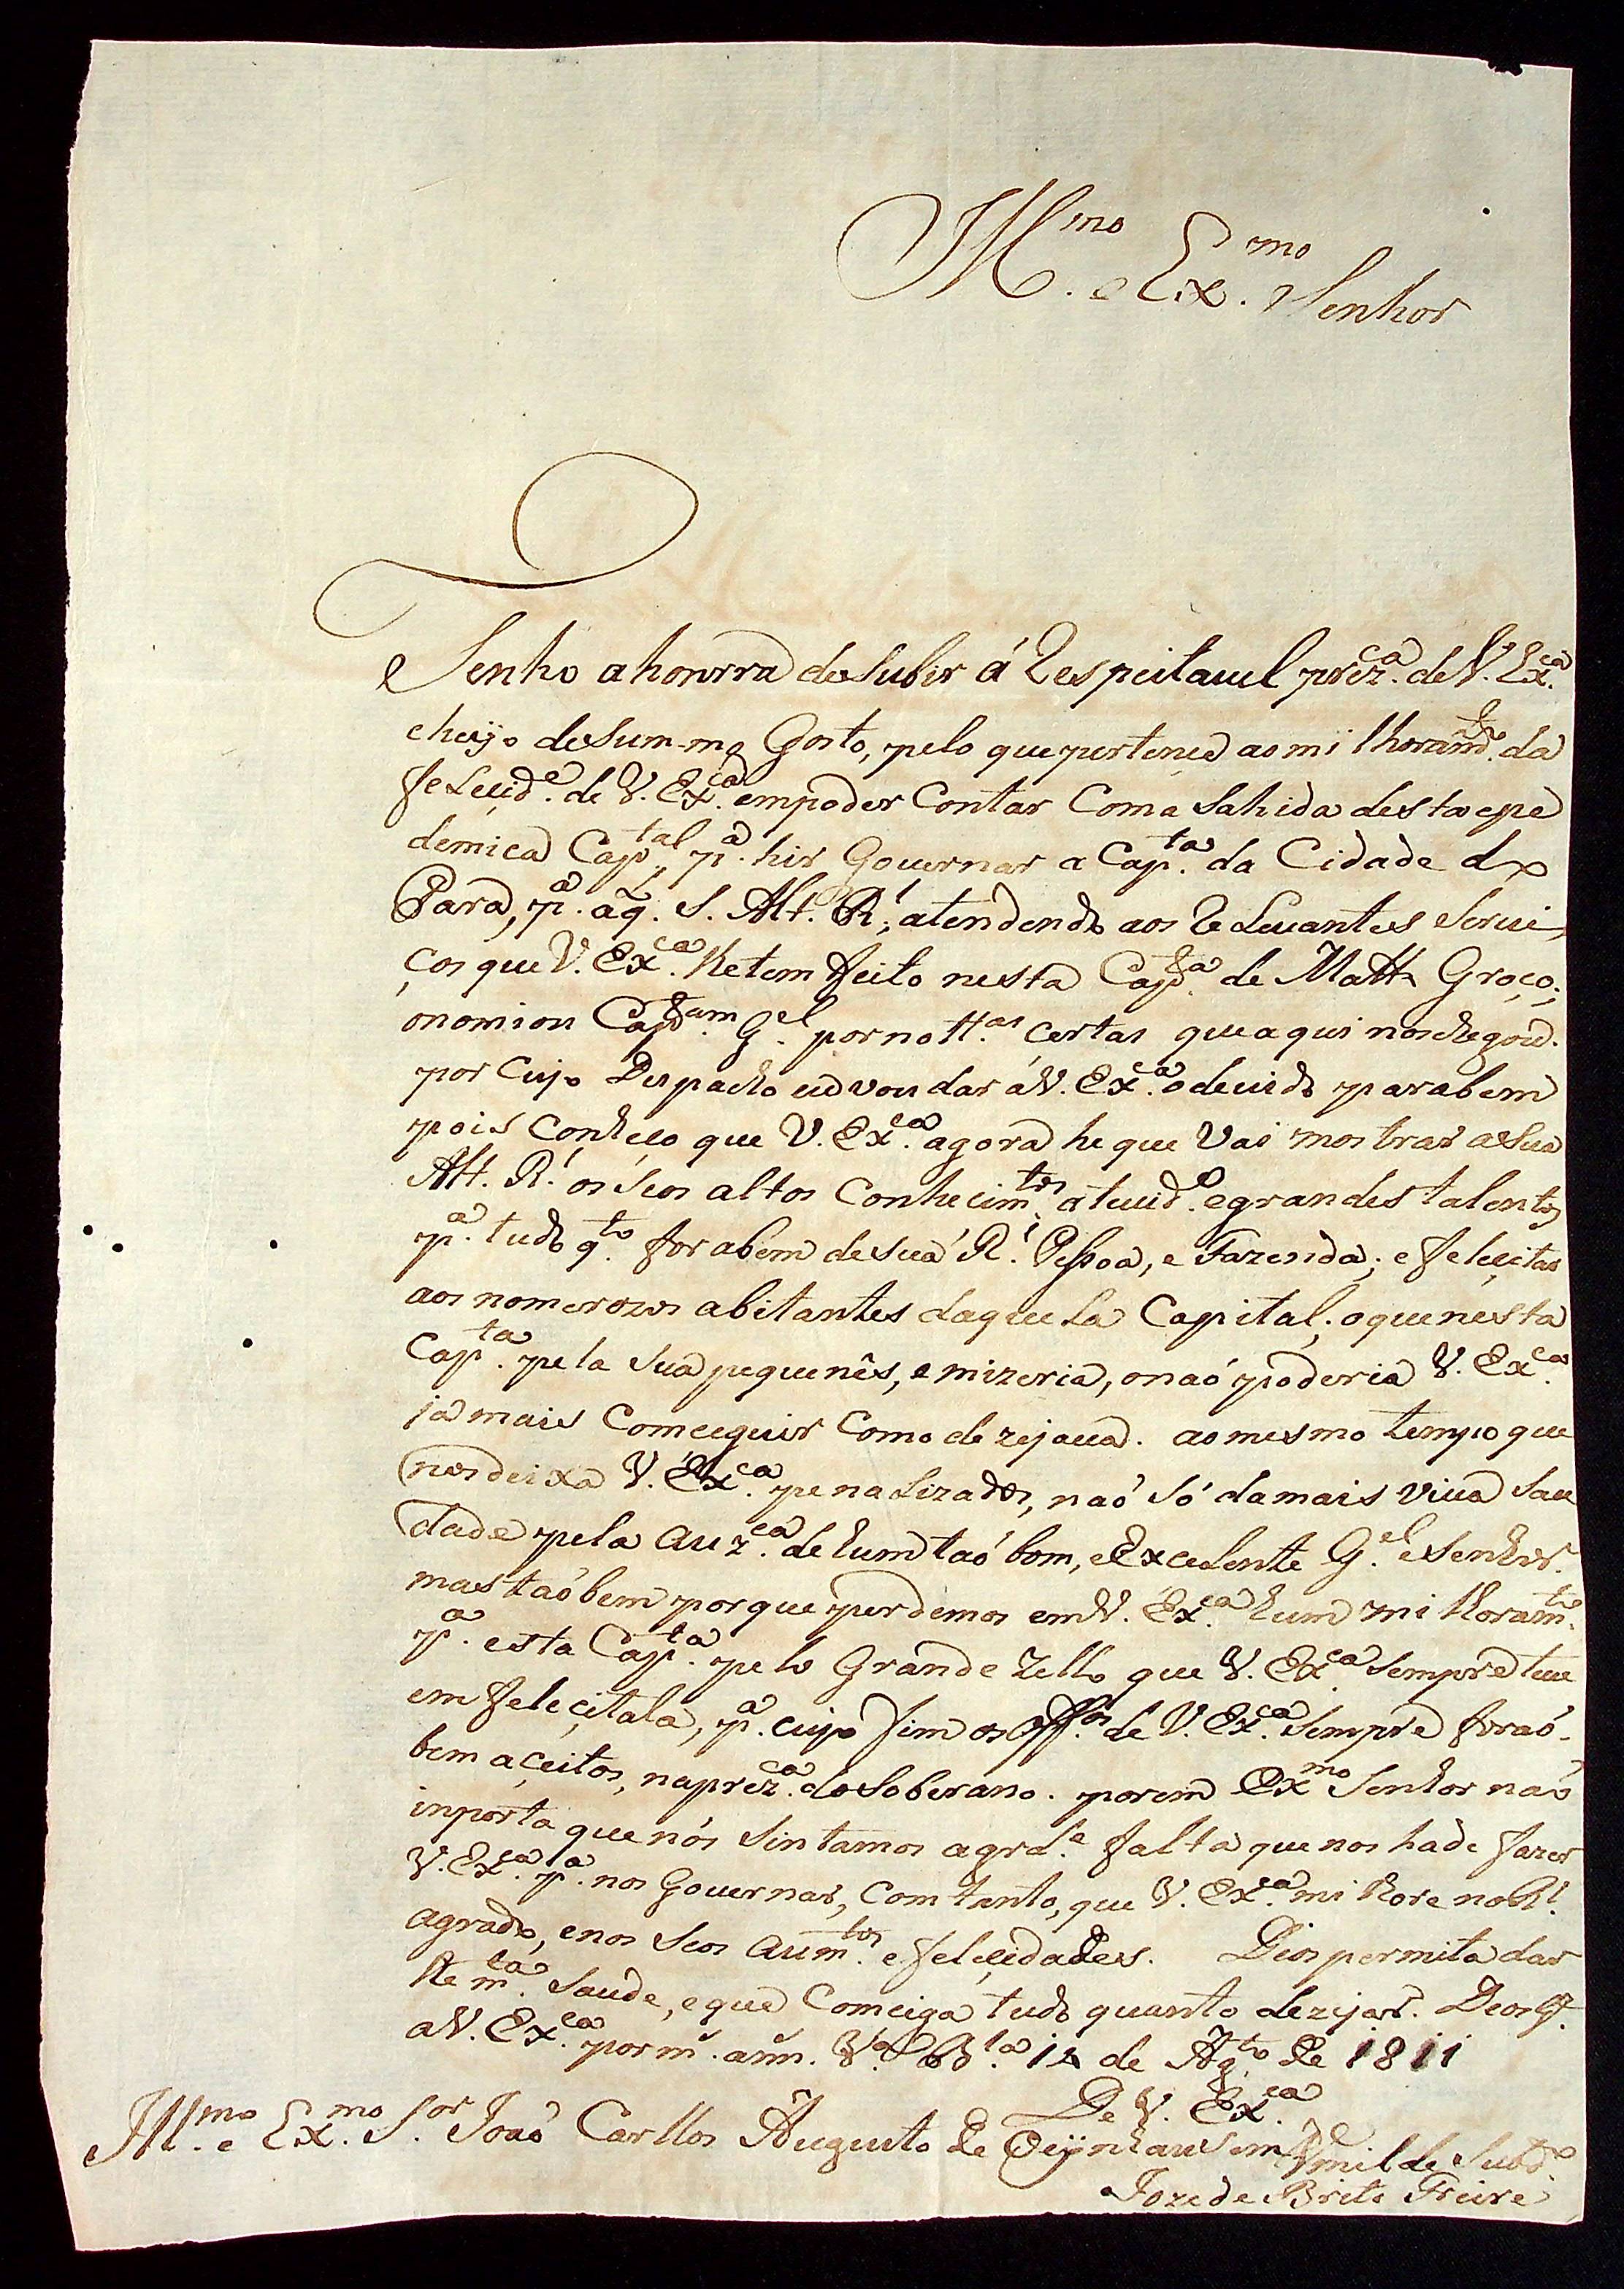 Ill.mo e Ex.mo Senhor
Tenho a honrra de Subir á Respeitavel prez.ca de V. Ex.ca
cheyo de Summo Gosto, pelo que pertence ao milhoram.to da
feLecid.e de V. Ex.ca em poder Contar Com a Sahida desta epe
demica Cap.tal, p.a hir Governar a Cap.ta da Cidade do
Pará, p.a a q. S. Alt. R.l, atendendo aos ReLevantes Servi,
ços que V. Ex.ca lhe tem feito nesta Cap.ta de Matto Groço;
o nomiou Cap.tam G.el por nott.as certas que aqui nos chegou.
por Cujo Despacho eu vou dar á V. Ex.ca o devido parabem
pois Conheço que V. Ex.ca agora he que Vai mostrar a Sua
Alt. R.l os Seos altos Conhecim.tos atevid.e e grandes talentos
p.a tudo q.to for a bem de Sua R.l Pessoa, e Fazenda; e felecitar
aos nomerozos abitantes daqueLa Capital; o que nesta
Cap.ta pela Sua pequenês, e mizeria, o naõ poderia V. Ex.ca
ja mais Comceguir Como dezejava. ao mesmo tempo que
nos deixa V. Ex.ca penaLizados, naõ Só da mais Viva Sau
dade pela auz.ca de hum taõ bom, e ExceLente G.el e Senhor.
mas taõ bem porque perdemos em V. Ex.ca hum milhoram.to
p.a esta Cap.ta pelo Grande Zello que V. Ex.ca Sempre teve
em feleçitala, p.a cujo fim os Off.os de V. Ex.ca Sempre foraõ
bem açeitos, na prez.ca do Soberano. porem Ex.mo Senhor naõ
inporta que nós Sintamos a grd.e falta que nos hade fazer
V. Ex.ca p.a nos Governar, Com tanto, que V. Ex.ca milhore no R.l
agrado, e nos Seos aum.tos e felecidades. Deos permita dar
lhe m.ta Saude, e que Comciga tudo quanto dezejar. Deos G.
a V. Ex.ca por m. ann. V.a B.la 12 de Ag.to de 1811
De V. Ex.ca
Ill.mo e Ex.mo S.or Joaõ Carllos Augusto de Oeÿnhausem
Vmilde Subd.o
Joze de Brito Freire